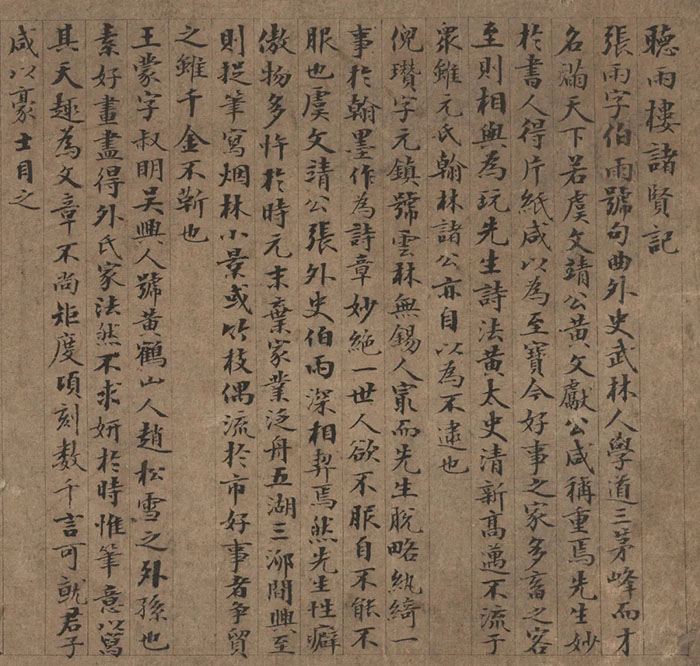 聽雨樓諸賢記
張雨字伯雨號句曲外史武林人學道三茅峰而才
名滿天下若虞文靖公黃文獻公咸稱重焉先生妙
於書人得片紙咸以為至寶今好事之家多畜之客
至則相與為玩先生詩法黃太史清新高邁不流于
衆雖元氏翰林諸公亦自以為不逮也
倪瓚字元鎮號雲林無錫人家而先生脫略紈綺一
事於翰墨作為詩章妙絕一世人欲不服自不能不
服也虞文靖公張外史伯雨深相契焉然先生性癖
傲物多忤於時元末棄家業泛舟五湖三泖間興至
則捉筆寫烟林小景或竹枝偶流於市好事者爭貿
之雖千金不靳也
王蒙字叔明吳興人號黃鶴山人趙松雪之外孫也
素好畫盡得外氏家法然不求妍於時惟筆意以寫
其天趣為文章不尚矩度頃刻數千言可就君子
咸以豪士目之